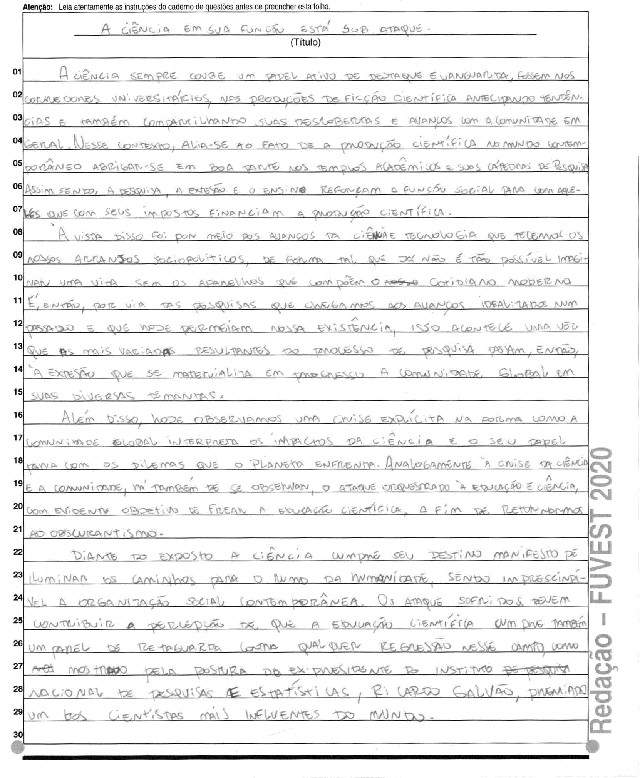 Atenção: Leia atentamente as instruções do caderno de questões antes de preencher esta folha.
A CIÊNCIA EM SUA FUNÇÃO ESTÁ SOB ATAQUE.
(Título)
01 A CIÊNCIA SEMPRE COUBE UM PAPEL ATIVO DE DESTAQUE E VANGUARDA, FOSSEM NOS
02 CORREDORES UNIVERSITÁRIOS, NAS PRODUÇÕES DE FICÇÃO CIENTÍFICA ANTECIPANDO TENDÊN-
03 CIAS E TAMBÉM COMPARTILHANDO SUAS DESCOBERTAS E AVANÇOS COM A COMUNIDADE EM
04 GERAL. NESSE CONTEXTO, ALIA-SE AO FATO DE A PRODUÇÃO CIENTÍFICA NO MUNDO CONTEM-
05 PORÂNEO ABRIGAR-SE EM BOA PARTE NOS TEMPLOS ACADÊMICOS E SUAS CÁTEDRAS DE PESQUISA
06 ASSIM SENDO, A PESQUISA, A EXTESÃO E O ENSINO REFORÇAM A FUNÇÃO SOCIAL PARA COM AQUE-
07 LES QUE COM SEUS IMPOSTOS FINANCIAM A PRODUÇÃO CIENTÍFICA.
08 À VISTA DISSO FOI POR MEIO DOS AVANÇOS DA CIÊNCIA E TECNOLOGIA QUE TECEMOS OS
09 NOSSOS ARRANJOS SOCIOPOLÍTICOS, DE FORMA TAL QUE JÁ NÃO É TÃO POSSÍVEL IMAGI-
10 NAR UMA VIDA SEM OS APARELHOS QUE COMPÕEM O NOSSO COTIDIANO MODERNO
11 É, ENTÃO, POR VIA DAS PESQUISAS QUE CHEGAMOS AOS AVANÇOS IDEALIZADOS NUM
12 PASSADO E QUE HOJE PERMEIAM NOSSA EXISTÊNCIA, ISSO ACONTECE UMA VEZ
13 QUE AS MAIS VARIADAS RESULTANTES DO PROCESSO DE PESQUISA GERAM, ENTÃO,
14 A EXTESÃO QUE SE MATERIALIZA EM PROGRESSO À COMUNIDADE GLOBAL EM
15 SUAS DIVERSAS DEMANDAS.
16 ALÉM DISSO, HOJE OBSERVAMOS UMA CRISE EXPLÍCITA NA FORMA COMO A
17 COMUNIDADE GLOBAL INTERPRETA OS IMPACTOS DA CIÊNCIA E O SEU PAPEL
18 PARA COM OS DILEMAS QUE O PLANETA ENFRENTA. ANALOGAMENTE À CRISE DA CIÊNCIA
19 E A COMUNIDADE, HÁ TAMBÉM DE SE OBSERVAR, O ATAQUE ORQUESTRADO À EDUCAÇÃO E CIÊNCIA,
20 COM EVIDENTE OBJETIVO DE FREAR A EDUCAÇÃO CIENTÍFICA, A FIM DE RETORNARMOS
21 AO OBSCURANTISMO.
22 DIANTE DO EXPOSTO A CIÊNCIA CUMPRE SEU DESTINO MANIFESTO DE
23 ILUMINAR OS CAMINHOS PARA O RUMO DA HUMANIDADE, SENDO IMPRESCINDÍ-
24 VEL A ORGANIZAÇÃO SOCIAL CONTEMPORÂNEA. OS ATAQUE SOFRIDOS DEVEM
25 CONTRIBUIR À PERCEPÇÃO DE QUE A EDUCAÇÃO CIENTÍFICA CUMPRE TAMBÉM
26 UM PAPEL DE RETAGUARDA CONTRA QUALQUER REGRESSÃO NESSE CAMPO, COMO
27 MOSTRADO PELA POSTURA DO EX-PRESIDENTE DO INSTITUTO DE PESQUISA
28 NACIONAL DE PESQUISAS E ESTATÍSTICAS, RICARDO GALVÃO, PREMIADO
29 UM DOS CIENTISTAS MAIS INFLUENTES DO MUNDO.
30
Redação – FUVEST 2020